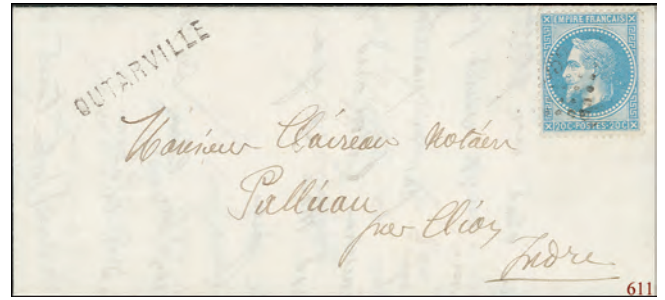 OUTARVILLE
EMPIRE FRANÇAIS
20C·POSTES·20C
Monsieur Claireau Notaire
Palluau
par Clion
Indre
611